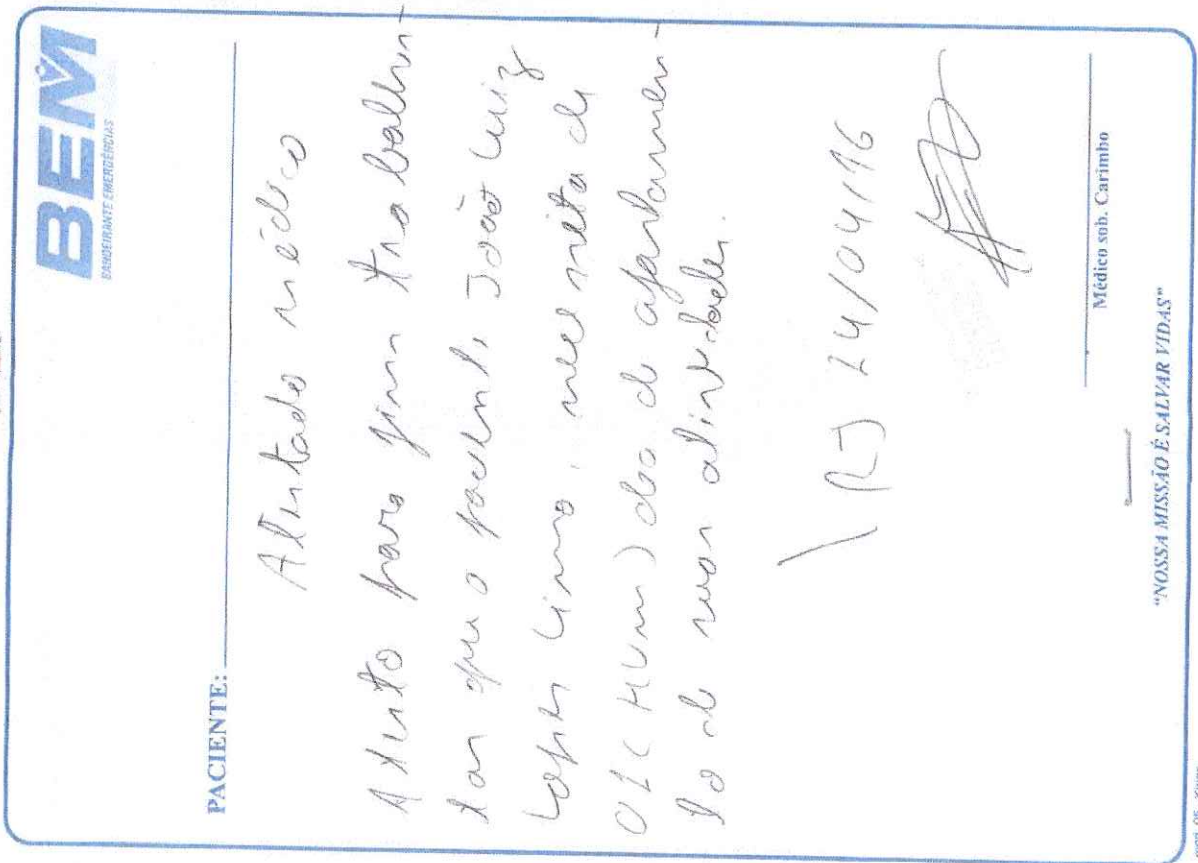 BEM
BANDEIRANTE EMERGÊNCIAS
PACIENTE:
Atestado médico
Atesto para fins trabalhis-
tas que o paciente, João Luiz
Lopes Lima, necessita de
01 (Hum) dia de afastamen-
to de suas atividades.
RJ 24/04/16
Médico sob. Carimbo
"NOSSA MISSÃO É SALVAR VIDAS"